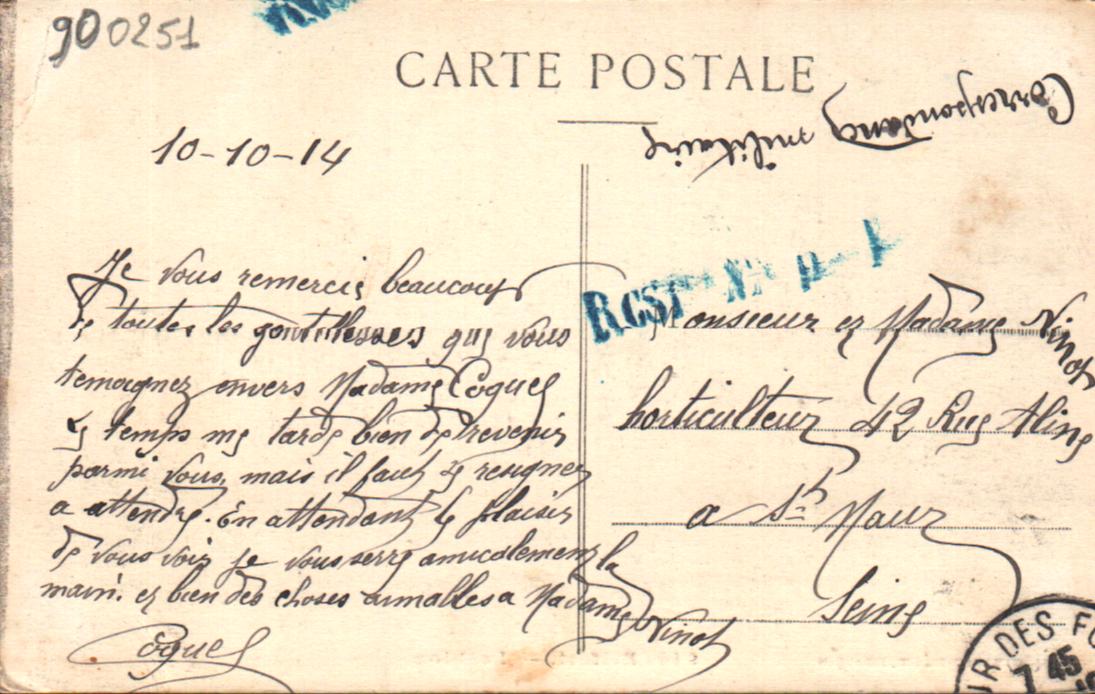 900251
CARTE POSTALE
Correspondance militaire
10-10-14
Je vous remercie beaucoup
de toutes les gentillesses que vous
temoignez envers Madame Coquel
Le temps me tarde bien de revenir
parmi vous, mais il faut se resigner
a attendre. En attendant le plaisir
de vous voir je vous serre amicalement la
main. et bien des choses aimables a Madame Ninot
Coquel
Monsieur et Madame Ninot
horticulteur 42 Rue Aline
a St Maur
Seine
DES FO
7 45